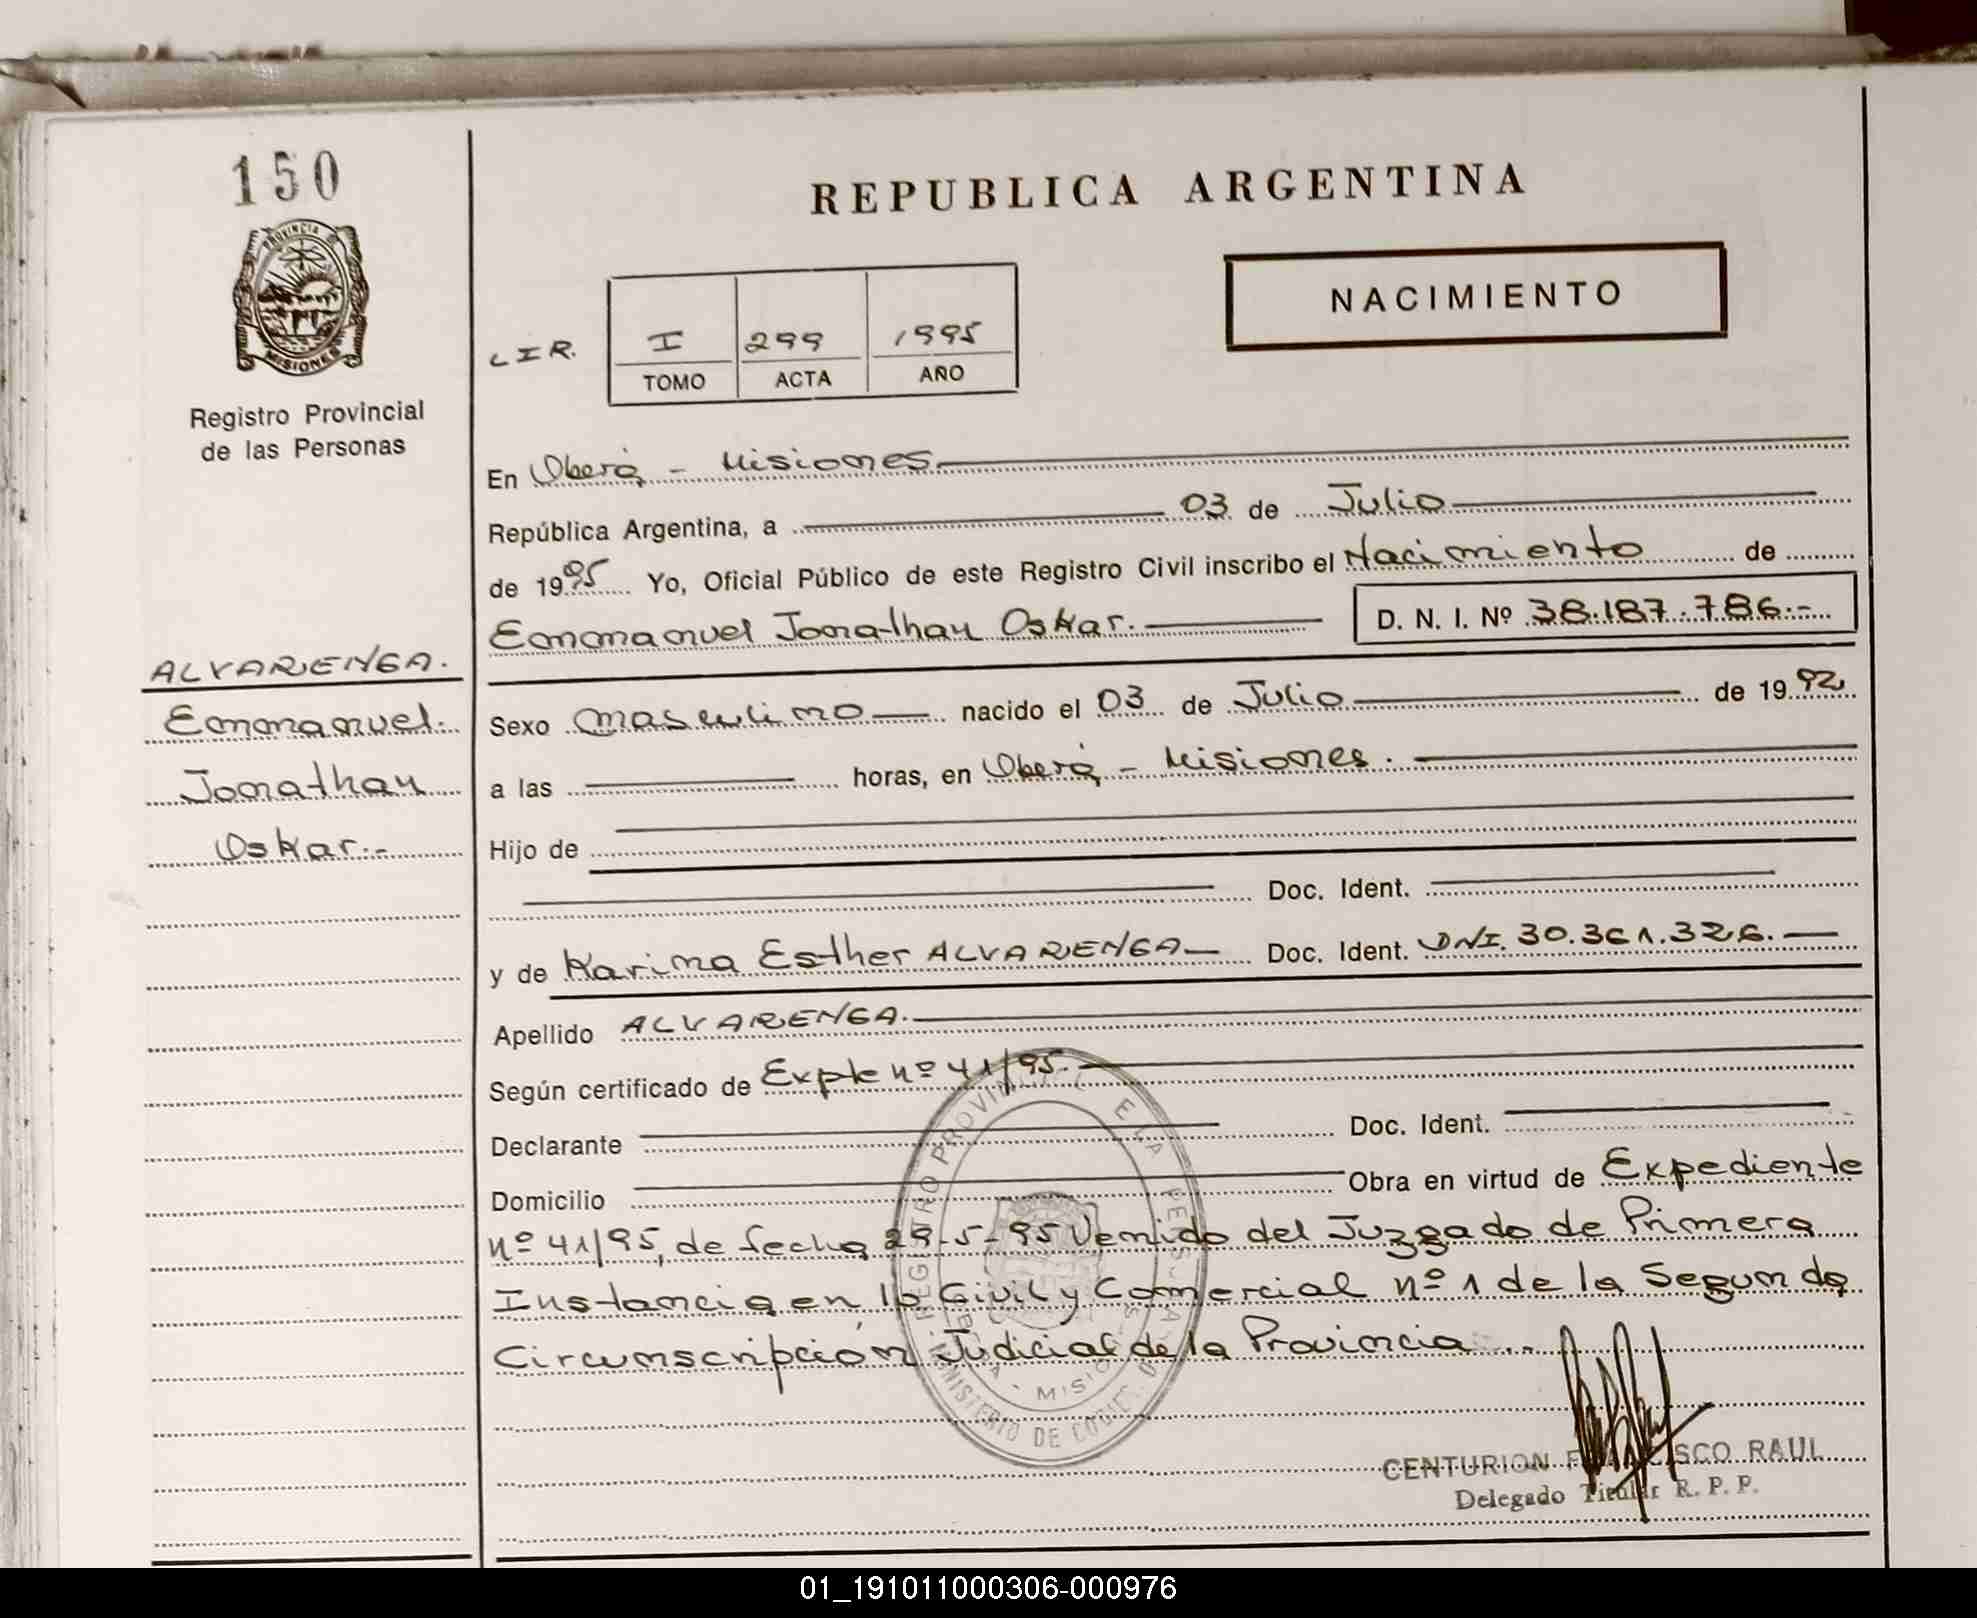 150
PROVINCIA DE
MISIONES
Registro Provincial
de las Personas
ALVARENGA.
Emmanuel.
Jonathan
Oskar.-
REPUBLICA ARGENTINA
NACIMIENTO
LIR.
I 299 1995
TOMO ACTA AÑO
En Oberá - Misiones
República Argentina, a 03 de Julio
de 1995 Yo, Oficial Público de este Registro Civil inscribo el Nacimiento de
Emmanuel Jonathan Oskar. D. N. I. Nº 38.187.786.-
Sexo masculino nacido el 03 de Julio de 1992
a las horas, en Oberá - Misiones.
Hijo de
Doc. Ident.
y de Karina Esther ALVARENGA Doc. Ident. DNI. 30.361.326.
Apellido ALVARENGA.
Según certificado de Expte nº 41/95.
Declarante Doc. Ident.
Domicilio Obra en virtud de Expediente
nº 41/95, de fecha 29-5-95 Venido del Juzgado de Primera
Instancia en lo Civil y Comercial nº 1 de la Segunda
Circunscripción Judicial de la Provincia
CENTURION RAUL
Delegado Titular R. P. P.
01_191011000306-000976